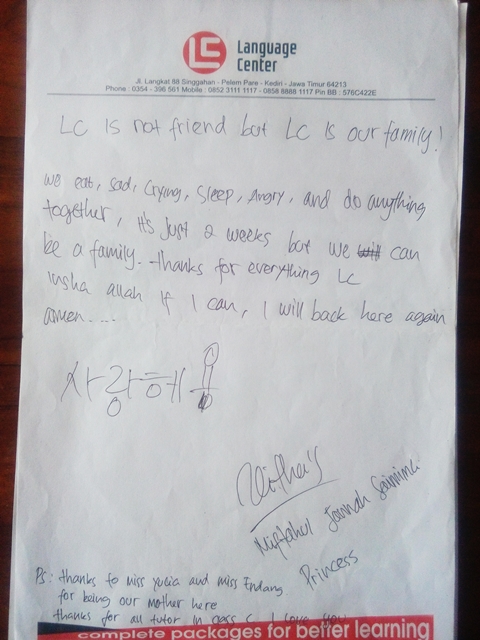 LC Language
Center
Jl. Langkat 88 Singgahan - Pelem Pare - Kediri - Jawa Timur 64213
Phone : 0354 - 396 561 Mobile : 0852 3111 1117 - 0858 8888 1117 Pin BB : 576C422E
LC is not friend but LC is our family!
We eat, sad, crying, sleep, angry, and do anything
together, it's just 2 weeks but we can
be a family. thanks for everything LC
insha allah if I can, I will back here again
amen....
사랑해
Miftahul Jannah
Princess
Ps: thanks to miss yucia and miss Endang
for being our mother here
thanks for all tutor in class C I love you
complete packages for better learning